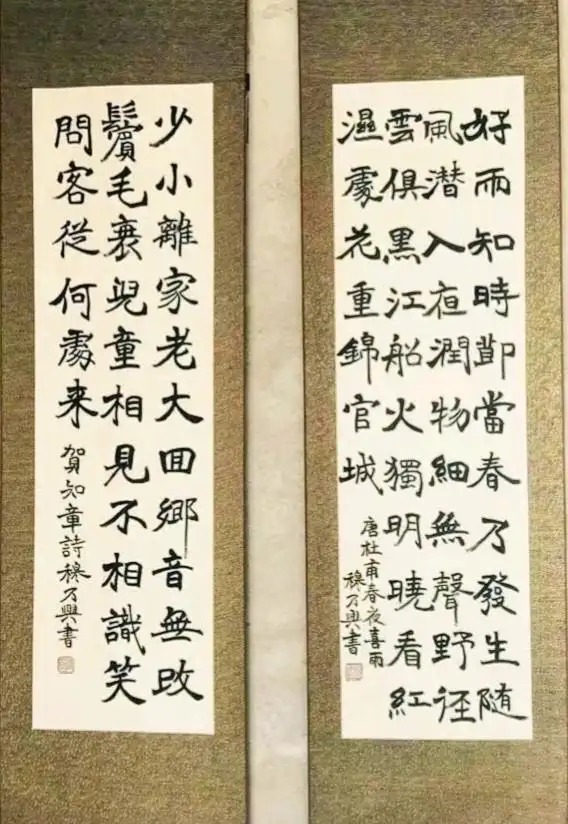 好雨知時節當春乃發生随
風潜入夜潤物細無聲野徑
雲俱黑江船火獨明曉看紅
濕處花重錦官城
唐杜甫春夜喜雨
穆乃興書
少小離家老大回鄉音無改
鬢毛衰兒童相見不相識笑
問客從何處来
賀知章詩穆乃興書